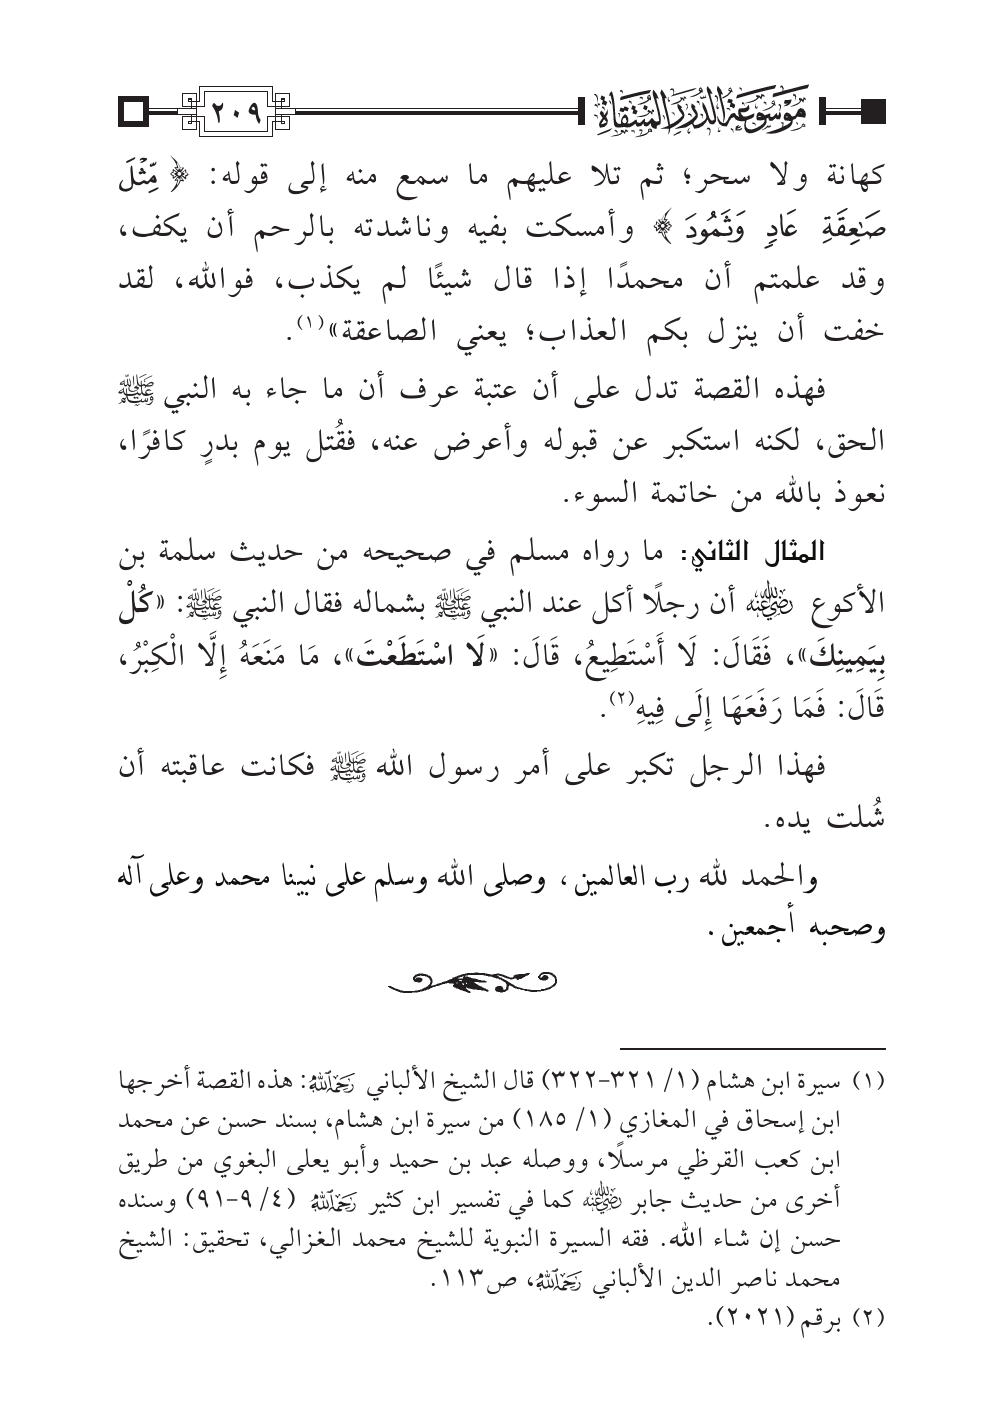 موسوعة الدرر المنتقاة
٢٠٩
كهانة ولا سحر؛ ثم تلا عليهم ما سمع منه إلى قوله: ﴿ مِّثْلَ
صَٰعِقَةِ عَادٖ وَثَمُودَ ﴾ وأمسكت بفيه وناشدته بالرحم أن يكف،
وقد علمتم أن محمدًا إذا قال شيئًا لم يكذب، فوالله، لقد
خفت أن ينزل بكم العذاب؛ يعني الصاعقة»(١).
فهذه القصة تدل على أن عتبة عرف أن ما جاء به النبي ﷺ
الحق، لكنه استكبر عن قبوله وأعرض عنه، فقُتل يوم بدرٍ كافرًا،
نعوذ بالله من خاتمة السوء.
المثال الثاني: ما رواه مسلم في صحيحه من حديث سلمة بن
الأكوع رضي الله عنه أن رجلًا أكل عند النبي ﷺ بشماله فقال النبي ﷺ: «كُلْ
بِيَمِينِكَ»، فَقَالَ: لَا أَسْتَطِيعُ، قَالَ: «لَا اسْتَطَعْتَ»، مَا مَنَعَهُ إِلَّا الْكِبْرُ،
قَالَ: فَمَا رَفَعَهَا إِلَى فِيهِ(٢).
فهذا الرجل تكبر على أمر رسول الله ﷺ فكانت عاقبته أن
شُلت يده.
والحمد لله رب العالمين، وصلى الله وسلم على نبينا محمد وعلى آله
وصحبه أجمعين.
(١) سيرة ابن هشام (١/ ٣٢١-٣٢٢) قال الشيخ الألباني رحمه الله: هذه القصة أخرجها
ابن إسحاق في المغازي (١/ ١٨٥) من سيرة ابن هشام، بسند حسن عن محمد
ابن كعب القرظي مرسلًا، ووصله عبد بن حميد وأبو يعلى البغوي من طريق
أخرى من حديث جابر رضي الله عنه كما في تفسير ابن كثير رحمه الله (٤/ ٩-٩١) وسنده
حسن إن شاء الله. فقه السيرة النبوية للشيخ محمد الغزالي، تحقيق: الشيخ
محمد ناصر الدين الألباني رحمه الله، ص١١٣.
(٢) برقم (٢٠٢١).